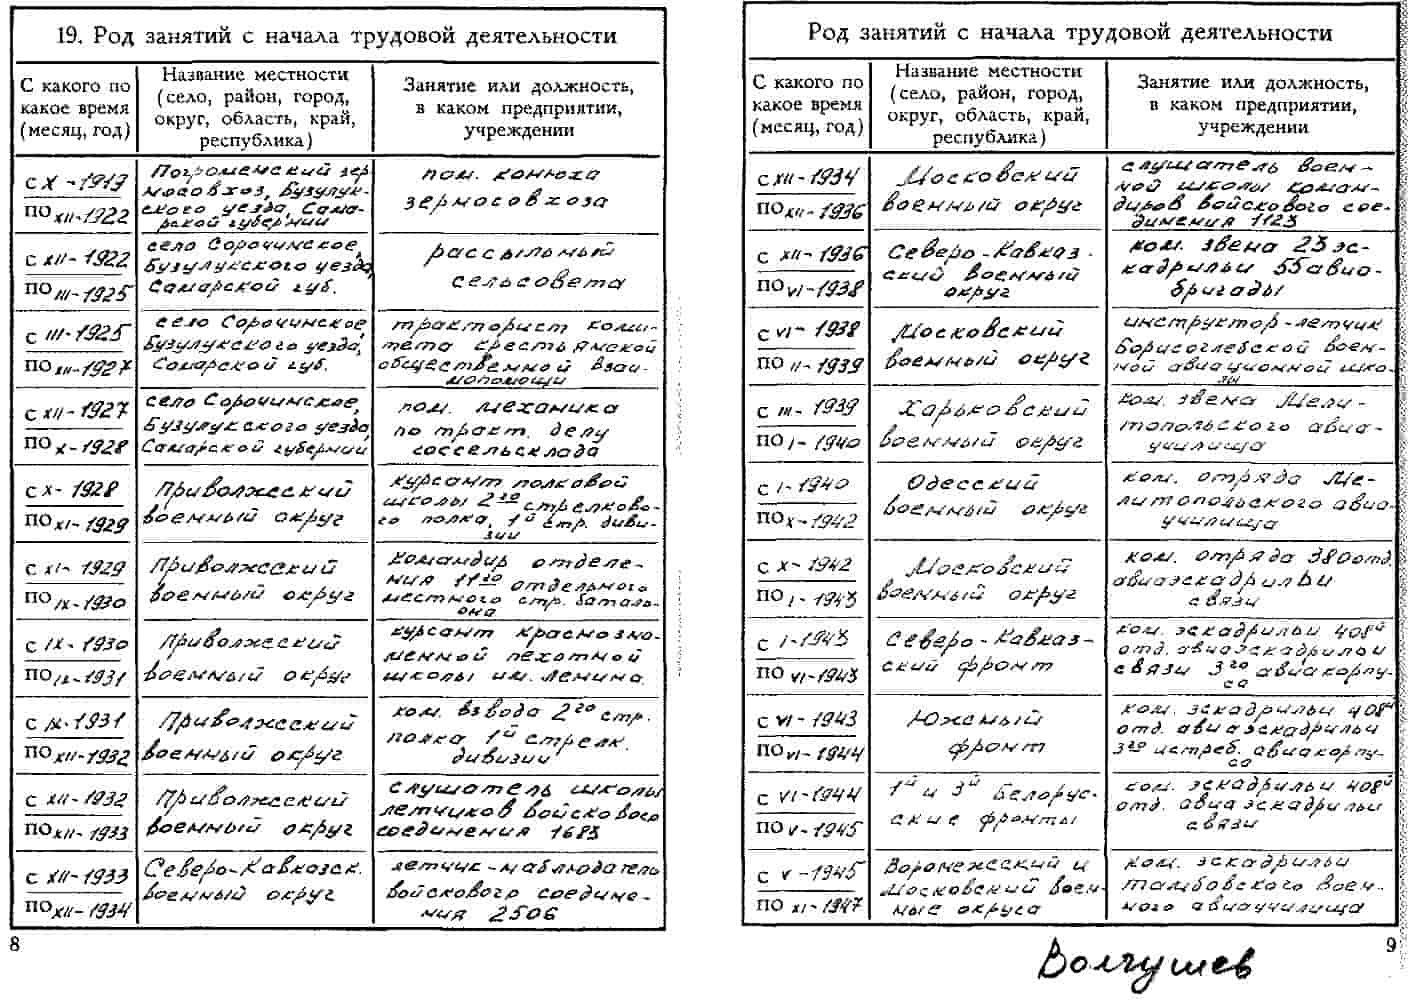 19. Род занятий с начала трудовой деятельности
С какого по
какое время
(месяц, год)
Название местности
(село, район, город,
округ, область, край,
республика)
Занятие или должность,
в каком предприятии,
учреждении
с X-1919
по XII-1922
Погроменский зер
мосовхоз, Бузулук-
ского уезда, Сама-
рской губернии
пом. конюха
зермосовхоза
с XII-1922
по III-1925
село Сорочинское,
Бузулукского уезда,
Самарской губ.
рассыльный
сельсовета
с III-1925
по XII-1927
село Сорочинское,
Бузулукского уезда,
Самарской губ.
тракторист коми-
тета крестьянской
общественной взаи-
мопомощи
с XII-1927
по X-1928
село Сорочинское,
Бузулукского уезда,
Самарской губернии
пом. механика
по тракт. делу
соссельсклада
с X-1928
по XI-1929
Приволжский
военный округ
курсант полковой
школы 2го стрелково-
го полка, 1й стр. диви-
зии
с XI-1929
по IX-1930
Приволжский
военный округ
командир отделе-
ния 11го отдельного
местного стр. баталь-
она
с IX-1930
по IX-1931
Приволжский
военный округ
курсант краснозна-
менной пехотной
школы им. Ленина.
с IX-1931
по XII-1932
Приволжский
военный округ
ком. взвода 2го стр.
полка 1й стрелк.
дивизии
с XII-1932
по XII-1933
Приволжский
военный округ
слушатель школы
летчиков войскового
соединения 1683
с XII-1933
по XII-1934
Северо-Кавказск.
военный округ
летчик-наблюдатель
войскового соедине-
ния 2506
8
Род занятий с начала трудовой деятельности
С какого по
какое время
(месяц, год)
Название местности
(село, район, город,
округ, область, край,
республика)
Занятие или должность,
в каком предприятии,
учреждении
с XII-1934
по XII-1936
Московский
военный округ
слушатель воен-
ной школы коман-
диров войскового сое-
динения 1123
с XII-1936
по VI-1938
Северо-Кавказ-
ский военный
округ
ком. звена 23 эс-
кадрильи 55 авио-
бригады
с VI-1938
по II-1939
Московский
военный округ
инструктор-летчик
Борисоглебской воен-
ной авиационной шко-
лы
с III-1939
по I-1940
Харьковский
военный округ
ком. звена Мели-
топольского авиа-
училища
с I-1940
по X-1942
Одесский
военный округ
ком. отряда Ме-
литопольского авиа-
училища
с X-1942
по I-1943
Московский
военный округ
ком. отряда 380 отд.
авиаэскадрильи
связи
с I-1943
по VI-1943
Северо-Кавказ-
ский фронт
ком. эскадрильи 408й
отд. авиаэскадрильи
связи 3го авиакорпу-
са
с VI-1943
по VI-1944
Южный
фронт
ком. эскадрильи 408й
отд. авиаэскадрильи
3го истреб. авиакорпу-
са
с VI-1944
по V-1945
1й и 3й Белорус-
ские фронты
ком. эскадрильи 408й
отд. авиаэскадрильи
связи
с V-1945
по XI-1947
Воронежский и
Московский воен-
ные округа
ком. эскадрильи
Тамбовского воен-
ного авиаучилища
9
Волгушев